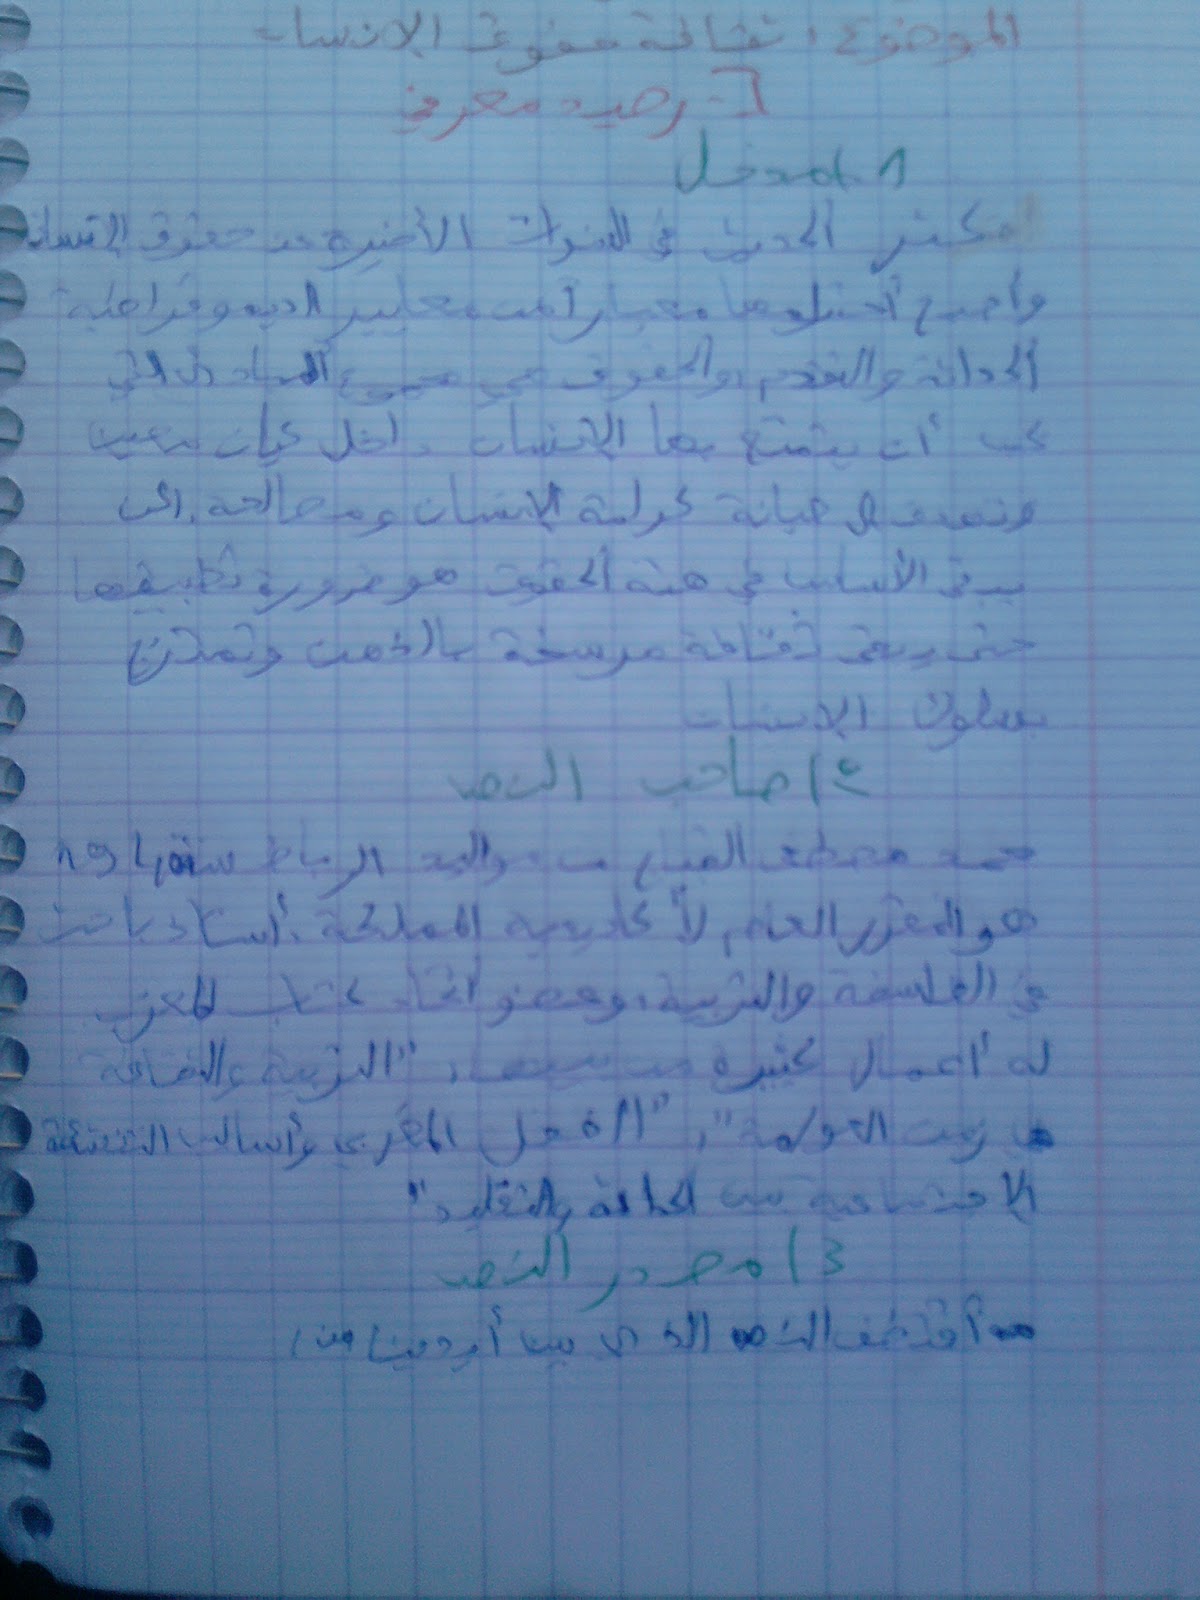 الموضوع: ثقافة حقوق الإنسان
I- رصيد معرفي
1. مدخل
كثر الحديث في السنوات الأخيرة عن حقوق الإنسان
وأصبح احترامها معيارا من معايير الديموقراطية
الحداثة والتقدم، والحقوق هي مجموع المبادئ التي
يجب أن يتمتع بها الإنسان داخل كيان معين
وتهدف إلى صيانة كرامة الإنسان ومصالحه. لكن
يبقى الأساس في هذه الحقوق هو ضرورة تطبيقها
حتى تبقى ثقافة مرسخة بالذهن و
بسلوك الإنسان
2) صاحب النص
محمد مصطفى القباج من مواليد الرباط سنة
هو المقرر العام لأكاديمية المملكة، أستاذ باحث
في الفلسفة والتربية، وعضو اتحاد كتاب المغرب
له أعمال كثيرة من بينها: "التربية والثقافة
في زمن العولمة"، "الطفل المغربي وأساليب التنشئة
الاجتماعية بين الحداثة والتقليد"
3) مصدر النص
اقتطف النص الذي بين أيدينا من: